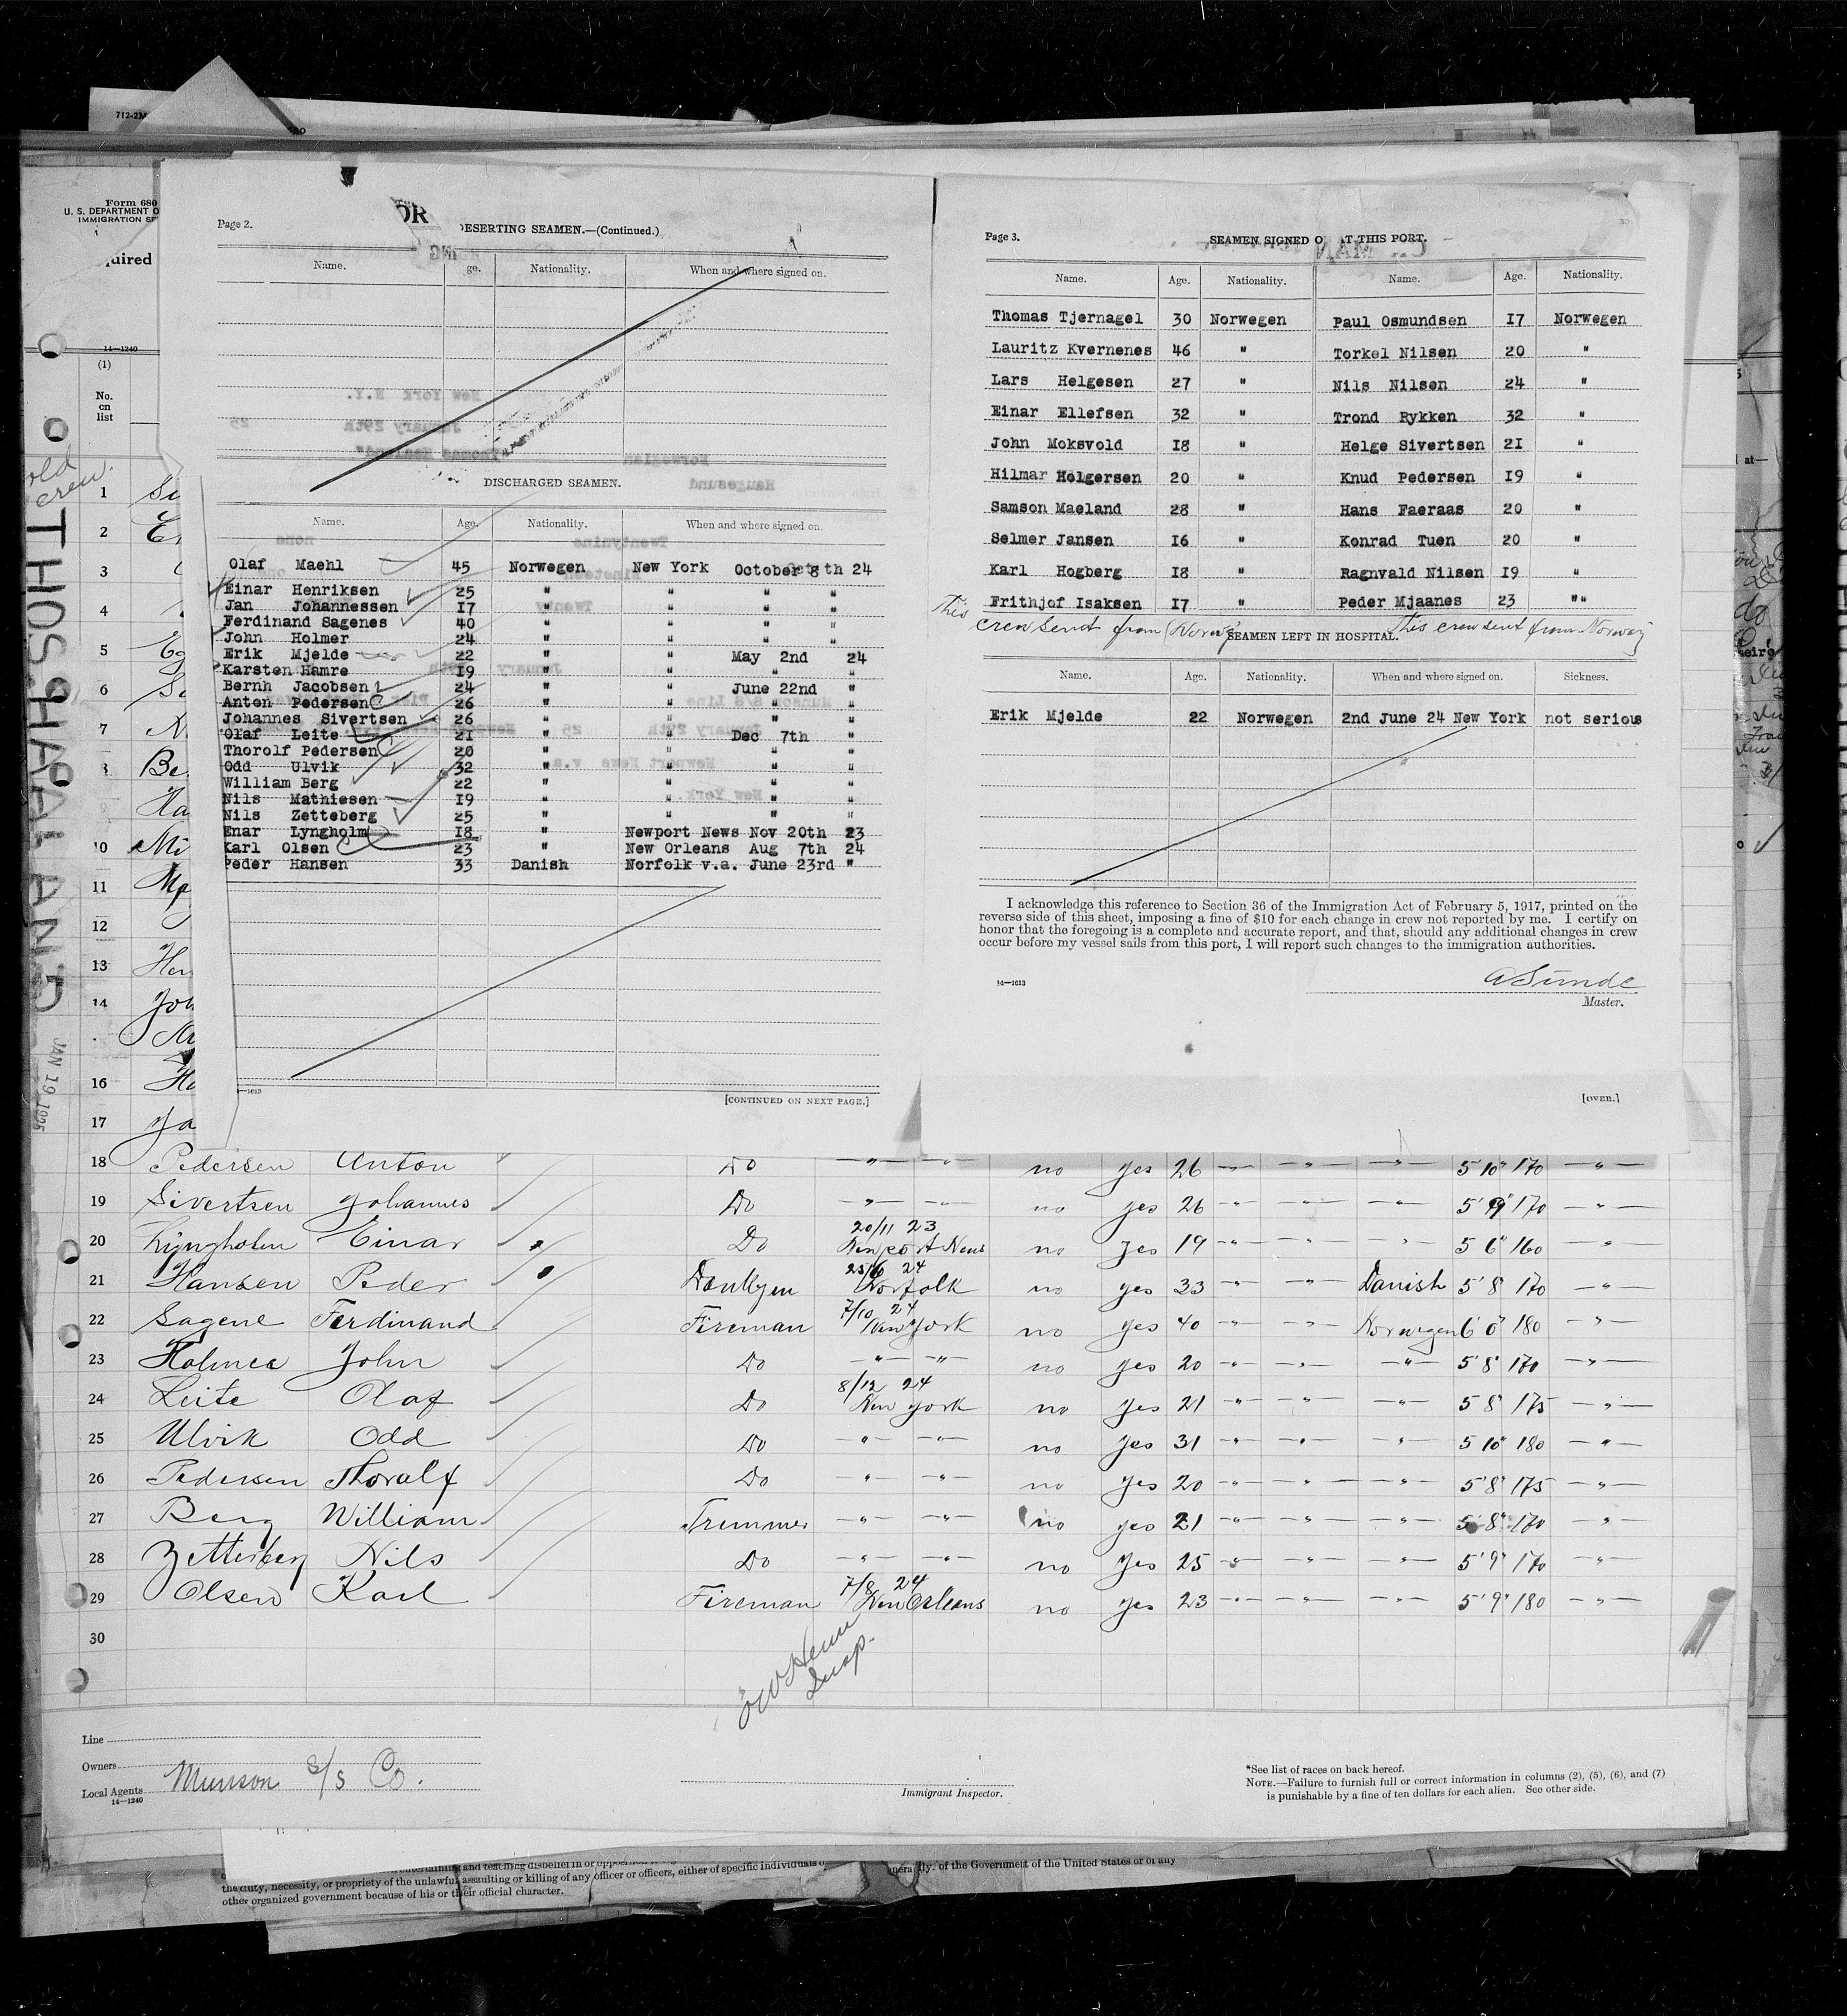 712-2M
Form 680
U. S. DEPARTMENT O
IMMIGRATION SE
uired
14—1240
(1)
No.
on
list
old
crew.
THOS. HAALAND
JAN 19 1925
Page 2.
DESERTING SEAMEN.—(Continued.)
Name. ge. Nationality. When and where signed on.
DISCHARGED SEAMEN.
Name. Age. Nationality. When and where signed on.
Olaf Maehl 45 Norwegen New York October 8th 24
Einar Henriksen 25 " " " "
Jan Johannessen 17 " " " "
Ferdinand Sagenes 40 " " " "
John Holmer 24 " " " "
Erik Mjelde 22 " " May 2nd 24
Karsten Hamre 19 " " " "
Bernh Jacobsen 24 " " June 22nd "
Anton Pedersen 26 " " " "
Johannes Sivertsen 26 " " " "
Olaf Leite 21 " " Dec 7th "
Thorolf Pedersen 20 " " " "
Odd Ulvik 32 " " " "
William Berg 22 " " " "
Nils Mathiesen 19 " " " "
Nils Zetteberg 25 " " " "
Enar Lyngholm 18 " Newport News Nov 20th 23
Karl Olsen 23 " New Orleans Aug 7th 24
Peder Hansen 33 Danish Norfolk v.a. June 23rd "
—1613
[CONTINUED ON NEXT PAGE.]
Page 3.
SEAMEN SIGNED O AT THIS PORT.
Name. Age. Nationality. Name. Age. Nationality.
Thomas Tjernagel 30 Norwegen Paul Osmundsen 17 Norwegen
Lauritz Kvernenes 46 " Torkel Nilsen 20 "
Lars Helgesen 27 " Nils Nilsen 24 "
Einar Ellefsen 32 " Trond Rykken 32 "
John Moksvold 18 " Helge Sivertsen 21 "
Hilmar Holgersen 20 " Knud Pedersen 19 "
Samson Maeland 28 " Hans Faeraas 20 "
Selmer Jansen 16 " Konrad Tuen 20 "
Karl Hogberg 18 " Ragnvald Nilsen 19 "
Frithjof Isaksen 17 " Peder Mjaanes 23 ""
This crew sent from Norwy This crew sent from Norway
SEAMEN LEFT IN HOSPITAL.
Name. Age. Nationality. When and where signed on. Sickness.
Erik Mjelde 22 Norwegen 2nd June 24 New York not serious
I acknowledge this reference to Section 36 of the Immigration Act of February 5, 1917, printed on the
reverse side of this sheet, imposing a fine of $10 for each change in crew not reported by me. I certify on
honor that the foregoing is a complete and accurate report, and that, should any additional changes in crew
occur before my vessel sails from this port, I will report such changes to the immigration authorities.
A Sunde
14—1613
Master.
[OVER.]
1
2
3
4
5
6
7
8
10
11
12
13
14
16
17
18 Pedersen Anton Do —"— —"— no yes 26 —"— —"— —"— 5' 10" 170 —"—
19 Sivertsen Johannes Do —"— —"— no yes 26 —"— —"— —"— 5' 9" 170 —"—
20 Lyngholm Einar Do 20/11 23 Newport News no yes 19 —"— —"— —"— 5 6" 160 —"—
21 Hansen Peder Donkyen 23/6 24 Norfolk no yes 33 —"— —"— Danish 5' 8" 170 —"—
22 Sagene Ferdinand Fireman 7/10 24 New York no yes 40 —"— —"— Norwegen 6' 0" 180 —"—
23 Holmer John Do —"— —"— no yes 20 —"— —"— —"— 5' 8" 170 —"—
24 Leite Olaf Do 8/12 24 New York no yes 21 —"— —"— —"— 5 8" 175 —"—
25 Ulvik Odd Do —"— —"— no yes 31 —"— —"— —"— 5 10" 180 —"—
26 Pedersen Thoralf Do —"— —"— no yes 20 —"— —"— —"— 5' 8" 175 —"—
27 Berg William Tremmer —"— —"— no yes 21 —"— —"— —"— 5' 8" 170 —"—
28 Zetterberg Nils Do —"— —"— no yes 25 —"— —"— —"— 5' 9" 170 —"—
29 Olsen Karl Fireman 7/8 24 New Orleans no yes 23 —"— —"— —"— 5' 9" 180 —"—
30
Insp.
Line
Owners
Local Agents Munson S/S Co.
14—1240
Immigrant Inspector.
*See list of races on back hereof.
NOTE.—Failure to furnish full or correct information in columns (2), (5), (6), and (7)
is punishable by a fine of ten dollars for each alien. See other side.
and teaching disbelief in or
the duty, necessity, or propriety of the unlawful assaulting or killing of any officer or officers, either of specific individuals o
of the Government of the United States or of any
other organized government because of his or their official character.